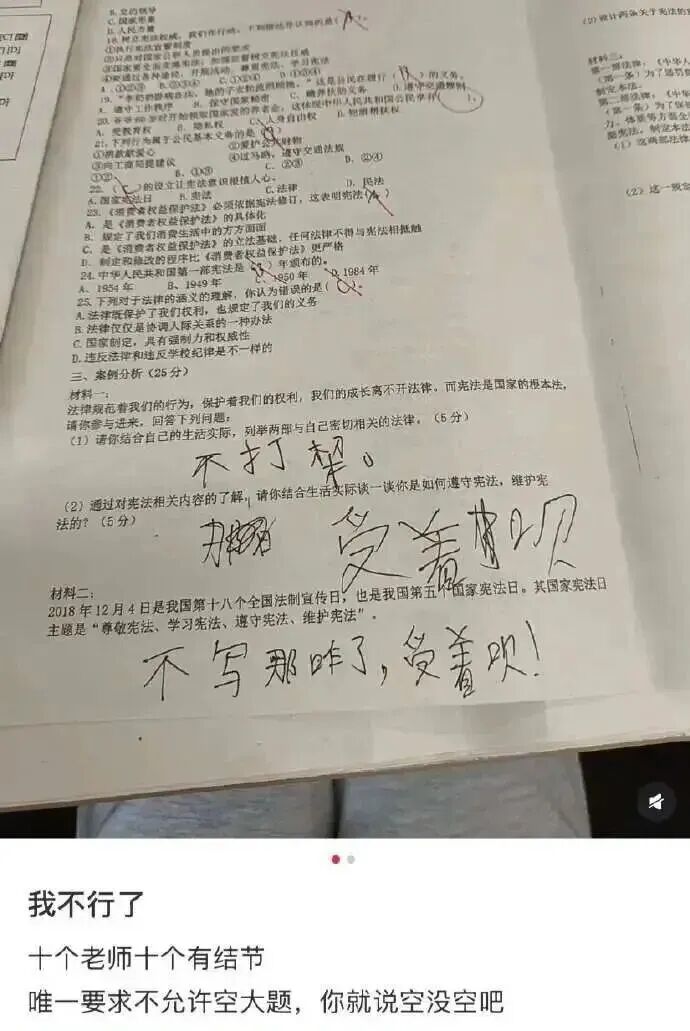 B. 党的领导
C. 国家形象
D. 人民力量
18. 树立宪法权威，我们在行动。下列做法你认同的是( A )
①执行宪法宣誓制度
③国家要全面贯彻宪法，加强监督树立宪法权威
④要通过各种途径，开展活动，尊重宪法、学习宪法
A. ①②③ B. ②③④ C. ①②④ D. ①③④
19. “李奶奶卧病在床，她的子女轮流照顾她。”这是公民在履行( B )的义务。
A. 遵守工作秩序 B. 保守国家秘密 C. 赡养扶助义务 D. 遵守交通规则
20. 爷爷60岁时开始领取国家发的养老金，这体现中华人民共和国公民享有( )。
A. 受教育权 B. 隐私权 C. 人身自由权 D. 物质帮助权
21. 下列行为属于公民基本义务的是( )
①捐款献爱心 ②爱护公共财物
③向工商局提建议 ④过马路，遵守交通法规
A. ①② B. ①③ C. ②③ D. ②④
22. ( C )的设立让宪法意识根植人心。
A. 国家宪法日 B. 宪法 C. 法律 D. 民法
23. 《消费者权益保护法》必须依据宪法修订，这表明宪法( A )
A. 是《消费者权益保护法》的具体化
B. 规定了我们消费生活中的方方面面
C. 是《消费者权益保护法》的立法基础，任何法律不得与宪法相抵触
D. 制定和修改的程序比《消费者权益保护法》更严格
24. 中华人民共和国第一部宪法是( B )年颁布的。
A. 1954年 B. 1949年 C. 1950年 D. 1984年
25. 下列对于法律的涵义的理解，你认为错误的是( )
A. 法律既保护了我们权利，也规定了我们的义务
B. 法律仅仅是协调人际关系的一种办法
C. 国家制定，具有强制力和权威性
D. 违反法律和违反学校纪律是不一样的
三、案例分析（25分）
材料一：
法律规范着我们的行为，保护着我们的权利，我们的成长离不开法律。而宪法是国家的根本法，
请你参与进来，回答下列问题：
（1）请你结合自己的生活实际，列举两部与自己密切相关的法律。（5分）
不打架。
（2）通过对宪法相关内容的了解，请你结合生活实际谈一谈你是如何遵守宪法，维护宪
法的？（5分）
受着呗
材料二：
2018年12月4日是我国第十八个全国法制宣传日，也是我国第五个国家宪法日。其国家宪法日
主题是“尊敬宪法、学习宪法、遵守宪法、维护宪法”。
不写那咋了，受着呗！
（2）设计两条关于宪法的
材料三：
第一部法律，《中华人
（第一条）为了惩罚
制定本法。
第二部法律，《中华人
（第一条）为了保
（1）这两部法律
（2）这一规定
我不行了
十个老师十个有结节
唯一要求不允许空大题，你就说空没空吧